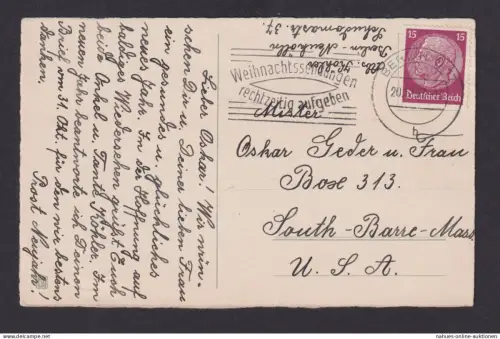 Lieber Oskar! Wir wün-
schen Dir u. Deiner lieben Frau
ein gesundes u. glückliches
neues Jahr. In der Hoffnung auf
baldiges Wiedersehen grüßt Euch
beide Onkel u. Tante Köhler. Im
neuen Jahr beantworte ich Deinen
Brief vom 31. Okt. für den wir bestens
danken. Prost Neujahr!
Abs. Köhler
Berlin-Neukölln
Schudomastr. 37.
Weihnachtssendungen
rechtzeitig aufgeben
15 15
Deutsches Reich
20
h
Mister
Oskar Geder u. Frau
Box 313.
South-Barre-Mass
U. S. A.
www.multique-auktionen.com